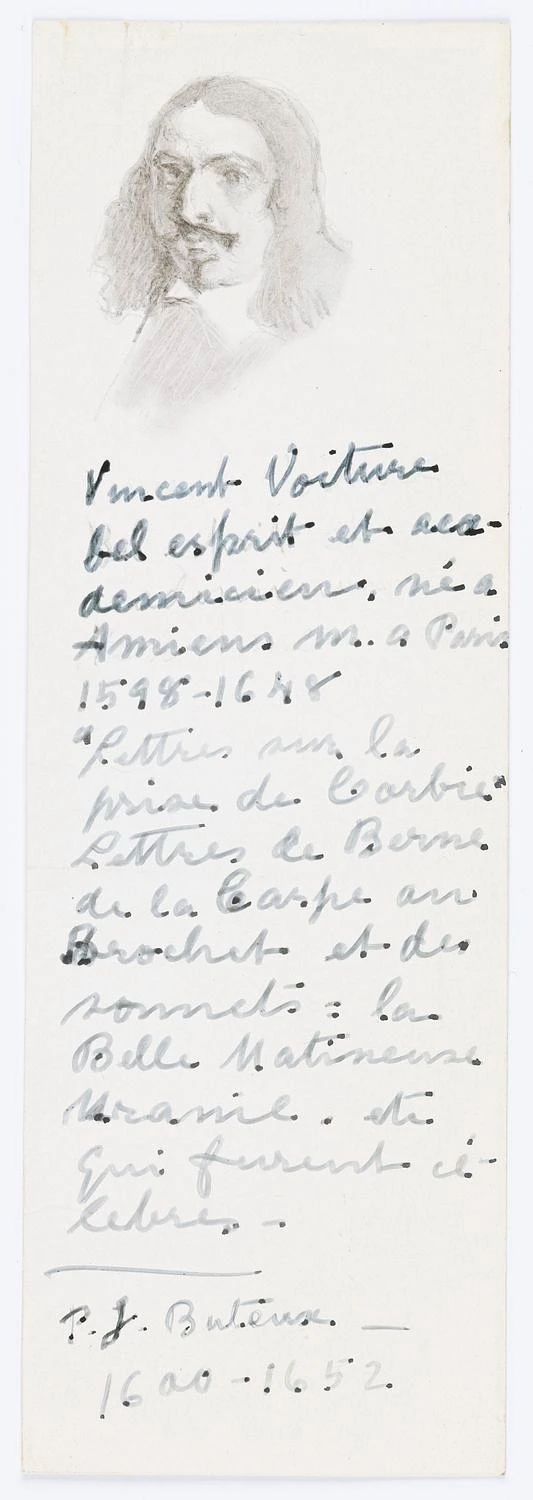 Vincent Voiture
bel esprit et aca-
demicien, né a
Amiens m. a Paris
1598-1648
"Lettres sur la
prise de Corbie"
Lettres de Berne
de la Carpe au
Brochet et des
sonnets : la
Belle Matineuse
Uranie. etc
qui furent cé-
lebres -
P. J. Buteux -
1600-1652